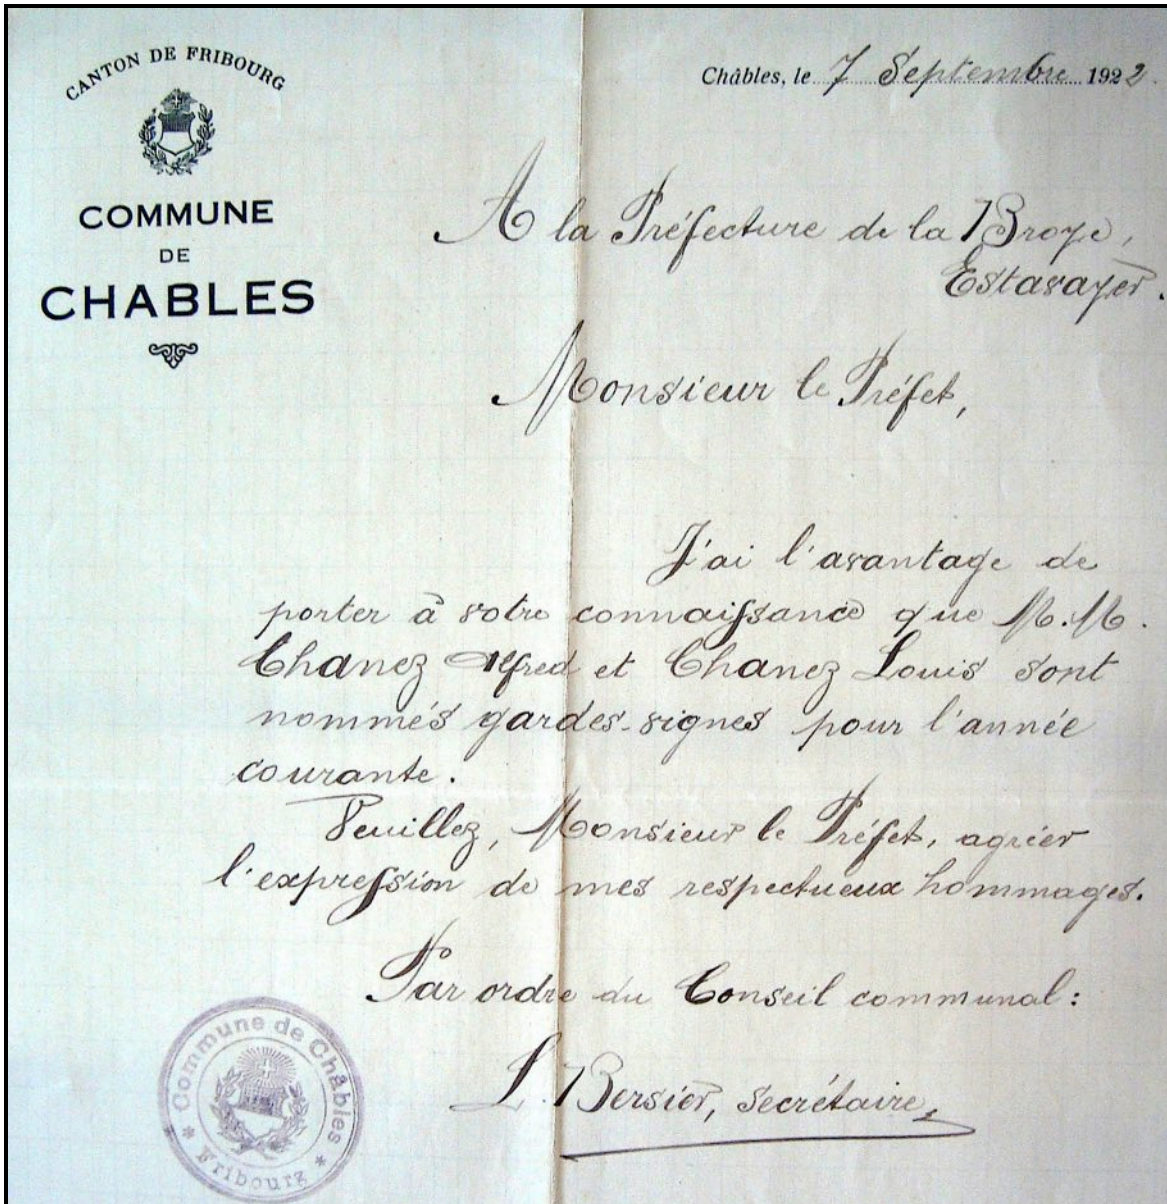 CANTON DE FRIBOURG
COMMUNE
DE
CHABLES
Châbles, le 7 Septembre 1922.
A la Préfecture de la Broye,
Estavayer.
Monsieur le Préfet,
J'ai l'avantage de
porter à votre connaissance que M.M.
Chanez Alfred et Chanez Louis sont
nommés gardes-vignes pour l'année
courante.
Veuillez, Monsieur le Préfet, agréer
l'expression de mes respectueux hommages.
Par ordre du Conseil communal:
L. Bersier, secrétaire,
Commune de Châbles
* Fribourg *